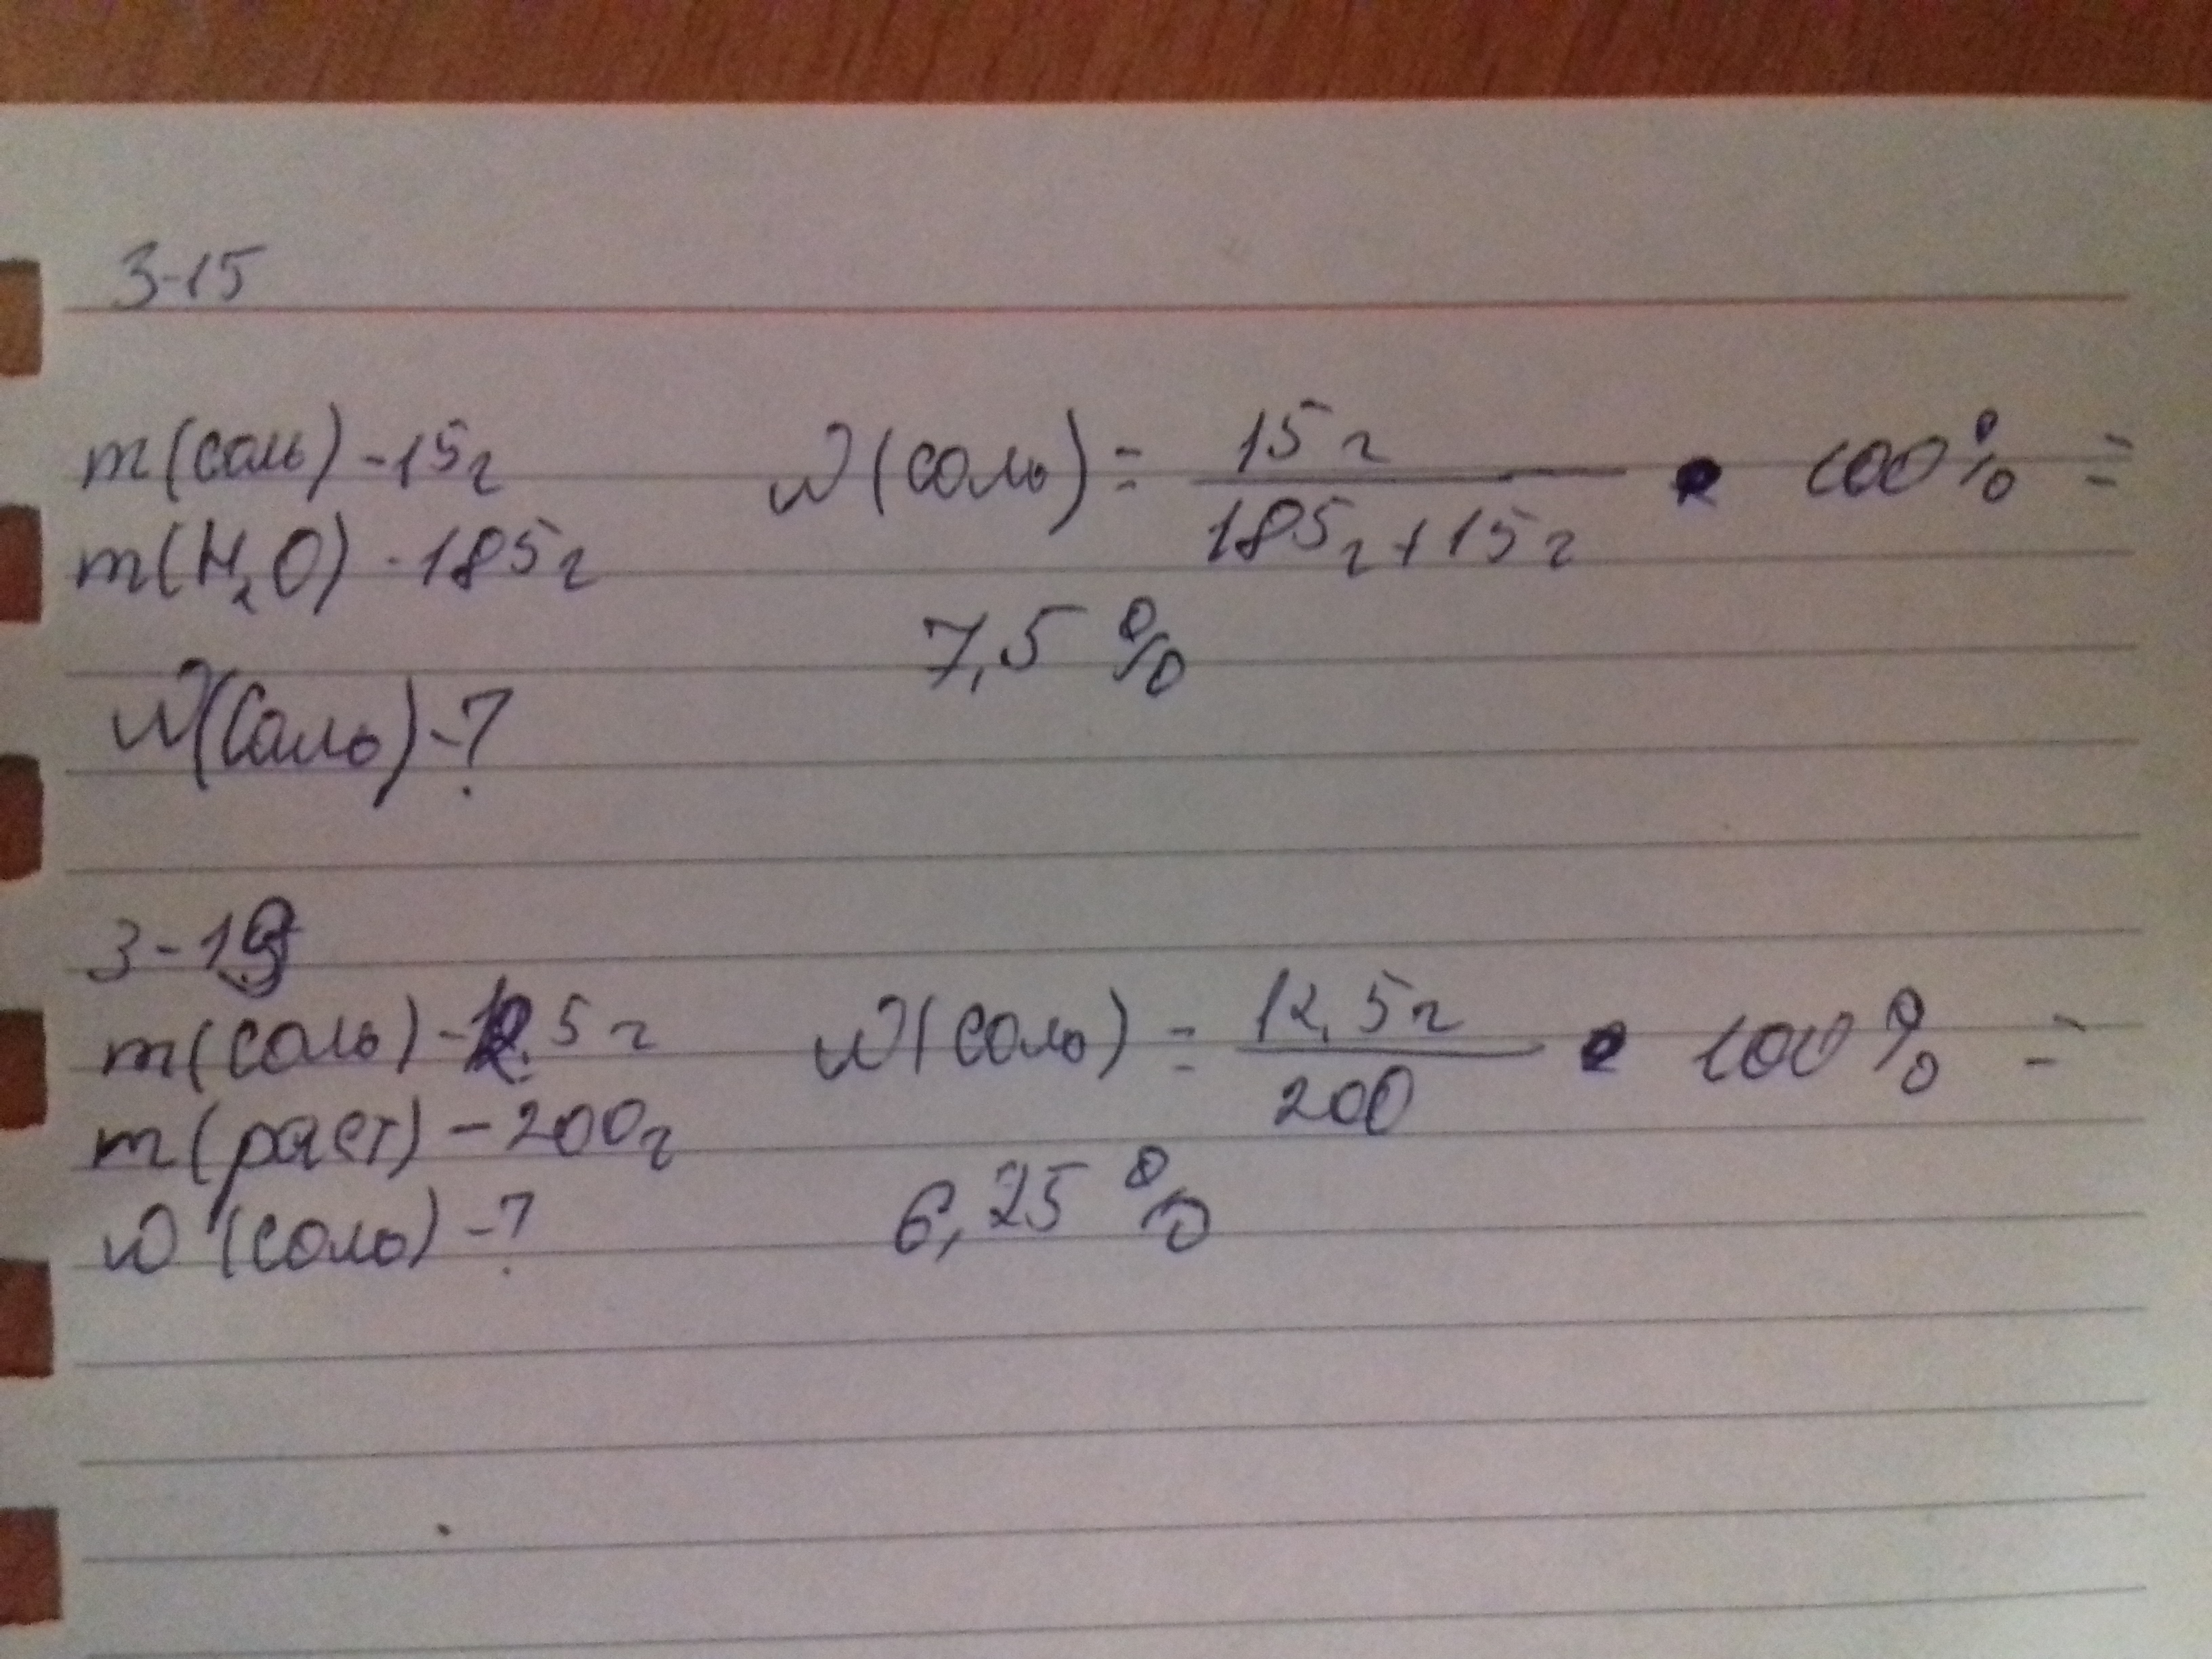 3-15
m(соль)-15г
m(H₂O)-185г
W(соль)-?
W(соль) = 15г / 185г+15г • 100% =
7,5 %
3-19
m(соль)-12,5г
m(раст)-200г
W(соль)-?
W(соль) = 12,5г / 200 • 100% =
6,25 %